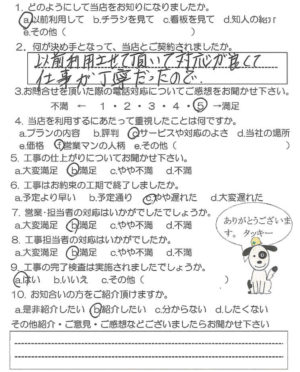 1. どのようにして当店をお知りになりましたか。
a.以前利用して b.チラシを見て c.看板を見て d.知人の紹介
e.その他( )
2, 何が決め手となって、当店とご契約されましたか。
以前利用させて頂いて対応が良くて
仕事が丁寧だったので
3.お問合せを頂いた際の電話対応についてご感想をお聞かせ下さい。
不満 ← 1・2・3・4・5 →満足
4. 当店を利用するにあたって重視したことは何ですか。
a.プランの内容 b.評判 c.サービスや対応のよさ d.当社の場所
e.価格 f.営業マンの人柄 e.その他( )
5. 工事の仕上がりについてお聞かせ下さい。
a.大変満足 b.満足 c.やや不満 d.不満
6. 工事はお約束の工期で終了しましたか。
a.予定より早い b.予定通り c.やや遅れた d.大変遅れた
7. 営業・担当者の対応はいかがでしたでしょうか。
a.大変満足 b.満足 c.やや不満 d.不満
8. 工事担当者の対応はいかがでしたか。
a.大変満足 b.満足 c.やや不満 d.不満
9. 工事の完了検査は実施されましたでしょうか。
a.はい b.いいえ c.その他( )
10. お知合いの方をご紹介頂けますか。
a.是非紹介したい b.紹介したい c.分からない d.したくない
その他紹介・ご意見・ご感想などございましたらお聞かせ下さい
ありがとうございま
す。 タッキー